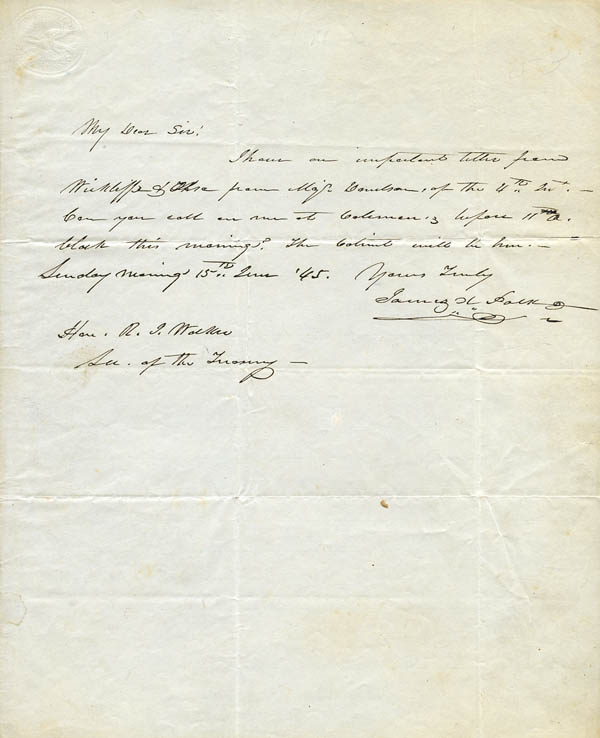 My Dear Sir!
I have an important letter from
Wickliffe & Also from Majr Donelson, of the 4th Inst. —
Can you call on me at Coleman's before 11 O.
Clock this morning? The Cabinet will be here. —
Sunday morning 15th June '45. Yours Truly
James K Polk
Hon. R. J. Walker
Sec. of the Treasury —